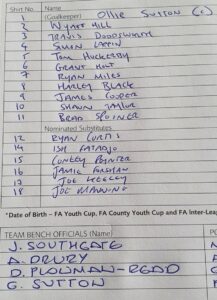 Shirt No. Name
1 (Goalkeeper) Ollie Sutton (c)
2 Wyatt Hill
3 Travis Dodds
4 Simon Lappin
5 Tom Huckerby
6 Grant Holt
7 Ryan Miles
8 Harley Black
9 James Cooper
10 Shaun Taylor
11 Brad Spooner
Nominated Substitutes
12 Ryan Curtis
14 Ish
15 Conley Pointer
16 Jamie Forshaw
17 Joe
18 Joe Manning
*Date of Birth - FA Youth Cup, FA County Youth Cup and FA Inter-Lea
TEAM BENCH OFFICIALS (Name)
J. SOUTHGATE
A. DRURY
D. PLOWMAN-READ
G. SUTTON